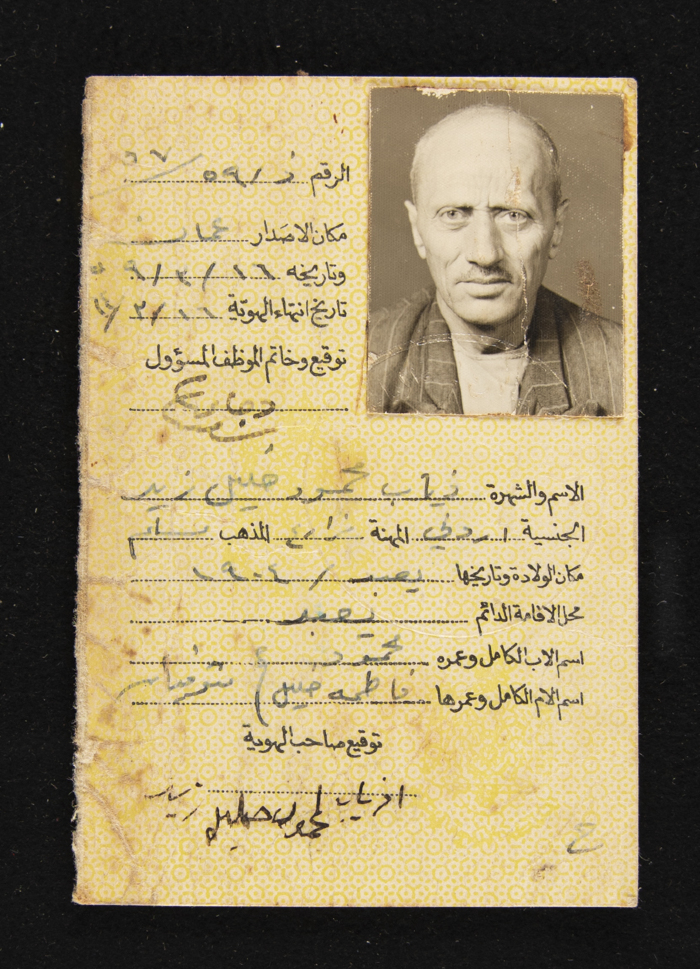 الرقم ذ / ٥٩ / ٥٧
مكان الاصدار عمان
وتاريخه ١٦ / ٣ / ٩
تاريخ انتهاء الهوية / ٣ /
توقيع وخاتم الموظف المسؤول
الاسم والشهرة ذياب محمود خليل زيد
الجنسية اردني المهنة زارع المذهب مسلم
مكان الولادة وتاريخها يعبد / ١٩٠٤
محل الاقامة الدائم يعبد
اسم الاب الكامل وعمره محمود
اسم الام الكامل وعمرها فاطمه خليل
توقيع صاحب الهوية
ذياب محمود خليل زيد